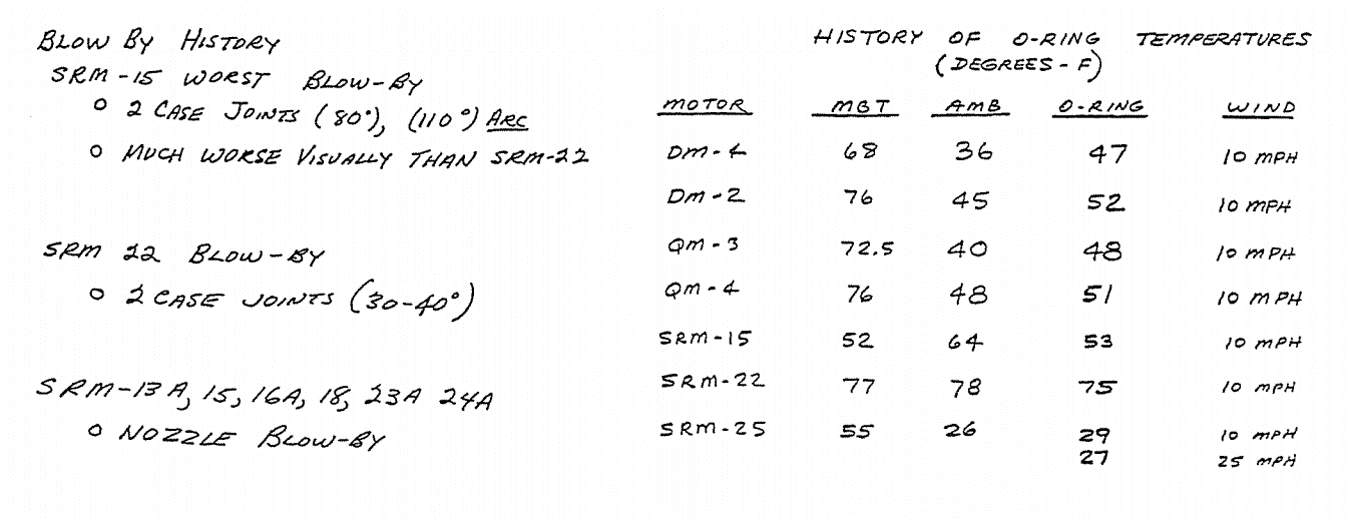 BLOW BY HISTORY
SRM-15 WORST BLOW-BY
○ 2 CASE JOINTS (80°), (110°) ARC
○ MUCH WORSE VISUALLY THAN SRM-22
SRM 22 BLOW-BY
○ 2 CASE JOINTS (30-40°)
SRM-13A, 15, 16A, 18, 23A 24A
○ NOZZLE BLOW-BY
HISTORY OF O-RING TEMPERATURES
(DEGREES-F)
MOTOR MBT AMB O-RING WIND
DM-4 68 36 47 10 MPH
DM-2 76 45 52 10 MPH
QM-3 72.5 40 48 10 MPH
QM-4 76 48 51 10 MPH
SRM-15 52 64 53 10 MPH
SRM-22 77 78 75 10 MPH
SRM-25 55 26 29 10 MPH
27 25 MPH